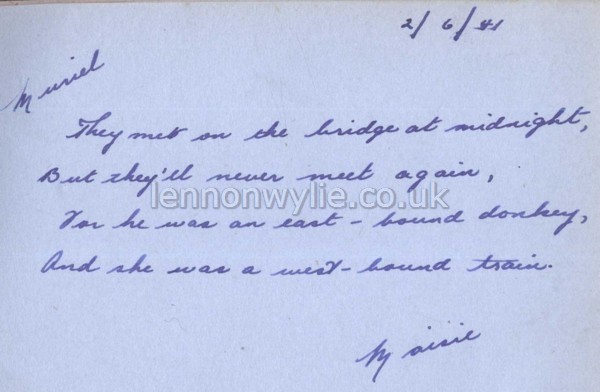 2/6/41
Muriel
They met on the bridge at midnight,
But they'll never meet again,
lennonwylie.co.uk
For he was an east-bound donkey,
And she was a west-bound train.
Maisie